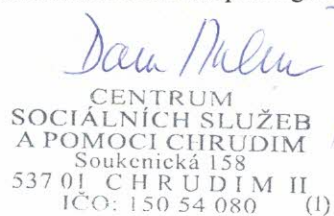 CENTRUM
SOCIÁLNÍCH SLUŽEB
A POMOCI CHRUDIM
Soukenická 158
537 01 CHRUDIM II
IČO: 150 54 080 (1)